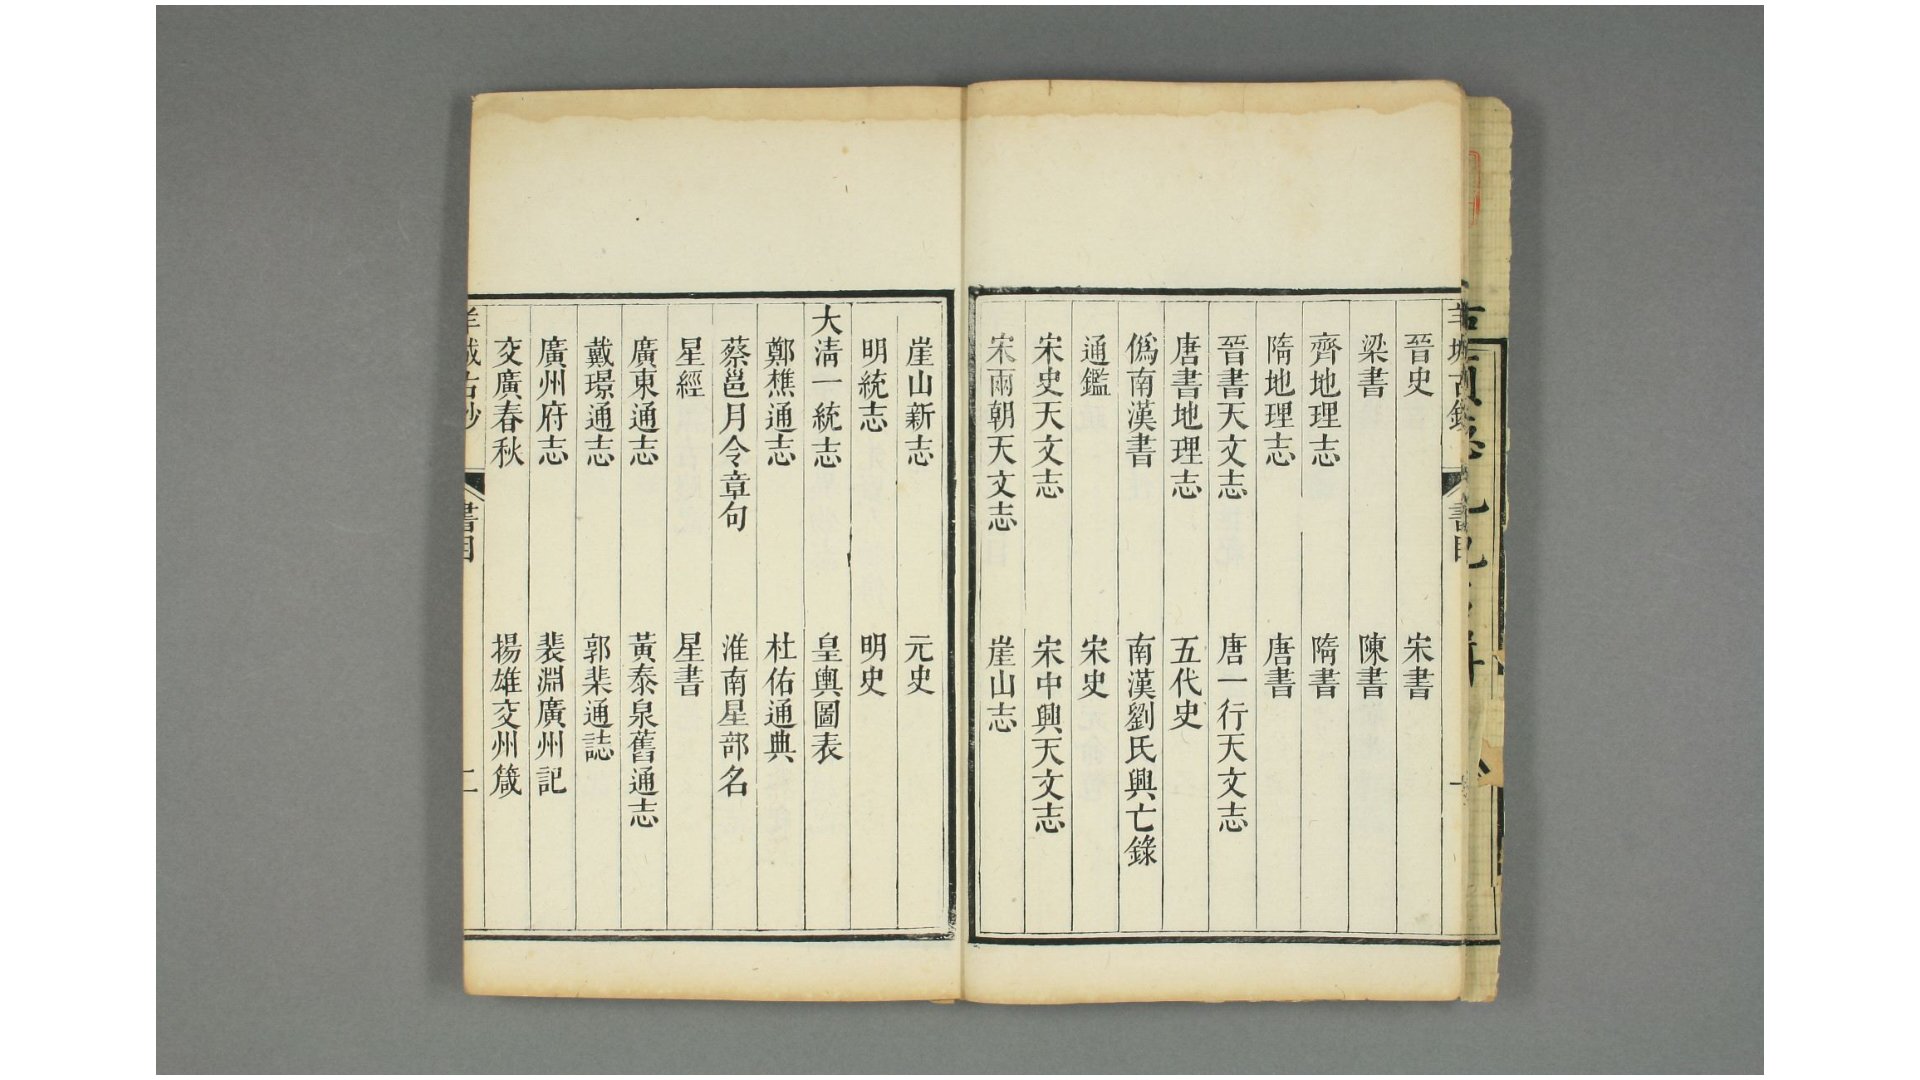 晉史 宋書
梁書 陳書
齊地理志 隋書
隋地理志 唐書
晉書天文志 唐一行天文志
唐書地理志 五代史
僞南漢書 南漢劉氏興亡錄
通鑑 宋史
宋史天文志 宋中興天文志
宋兩朝天文志 崖山志
崖山新志 元史
明統志 明史
大淸一統志 皇輿圖表
鄭樵通志 杜佑通典
蔡邕月令章句 淮南星部名
星經 星書
廣東通志 黃泰泉舊通志
戴璟通志 郭棐通誌
廣州府志 裴淵廣州記
交廣春秋 揚雄交州箴
羊城古鈔 書目 二